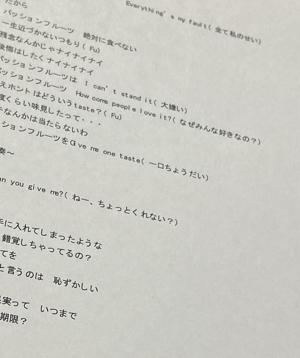 Everything's my fault(全て私のせい)
だから
パッションフルーツ 絶対に食べない
一生近づかないつもり(Fu)
残念なんかじゃナイナイナイ
後悔はしたくナイナイナイ
パッションフルーツは I can't stand it(大嫌い)
パッションフルーツ How come people love it?(なぜみんな好きなの?)
えホントはどういうtaste?(Fu)
度くらい味見したって・・・
チなんかは当たらないわ
ションフルーツをGive me one taste(一口ちょうだい)
奏～
an you give me?(ねー、ちょっとくれない?)
手に入れてしまったような
錯覚しちゃってるの?
てを
と言うのは 恥ずかしい
果実って いつまで
期限?